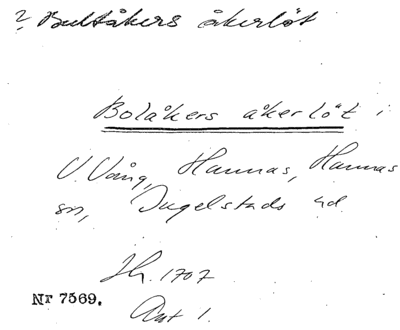 ? Bultåkers åkerlöt
Bolåkers åkerlöt i
V. Vång, Hannas, Hannas
sn, Ingelstads hd.
Jb. 1707
Ant 1.
Nr 7569.